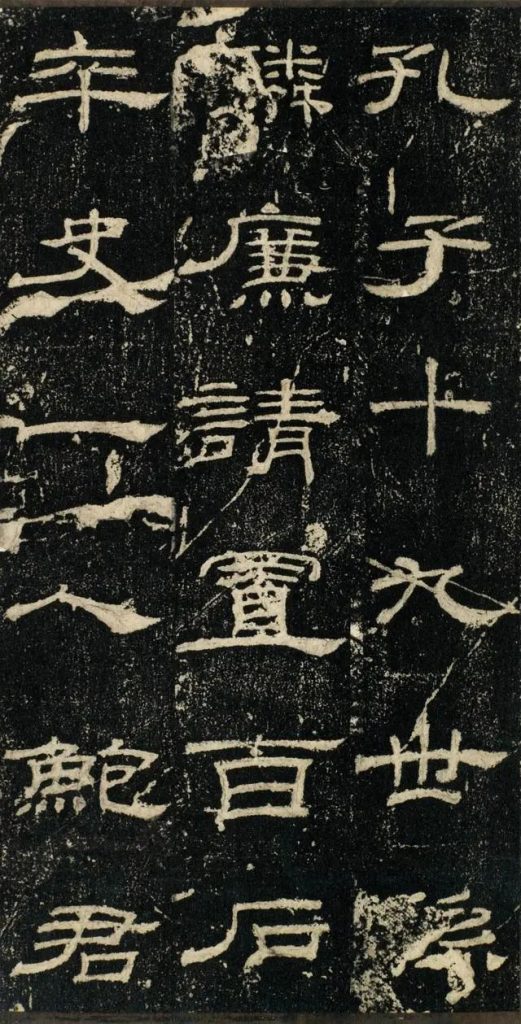 孔子十九世孫
麟廉請置百石
卒史一人鮑君